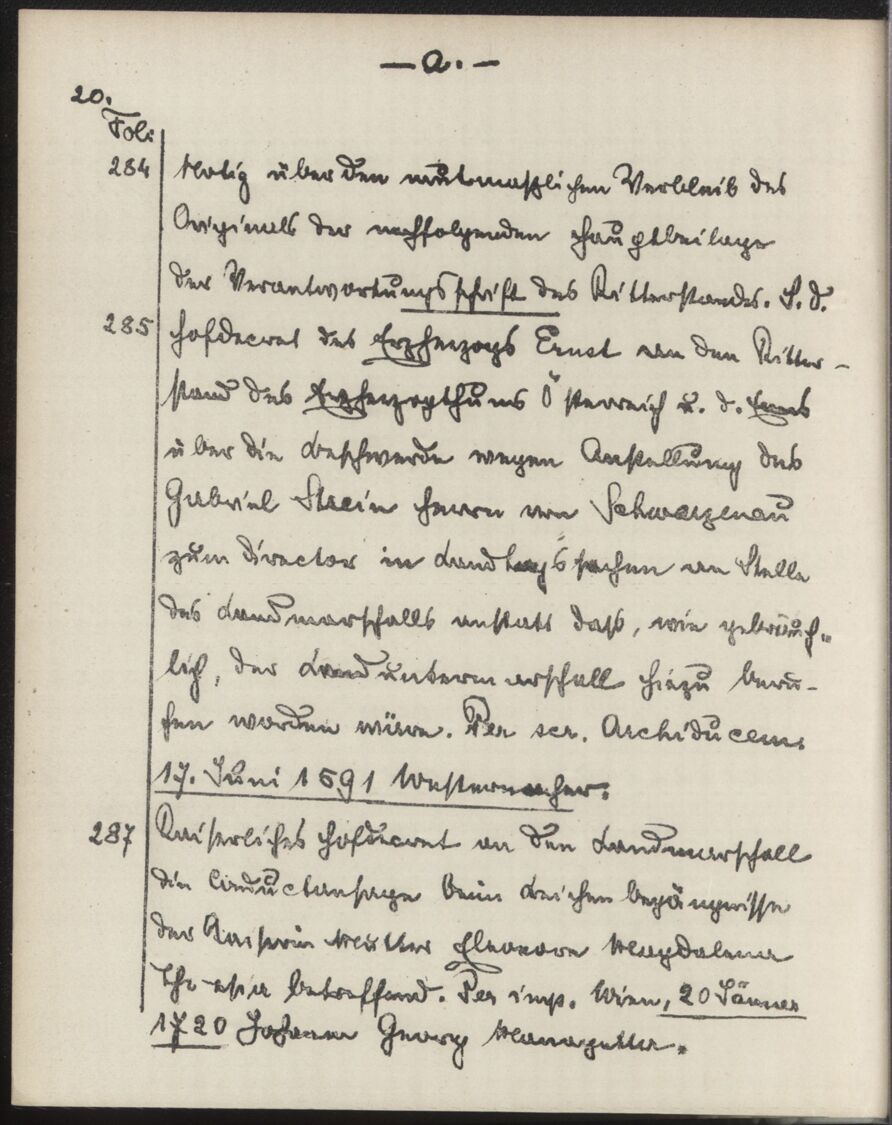 — a. —
20.
Fol:
284 Notiz über den mutmaßlichen Verbleib des
Originals der nachfolgenden Hauptbeilage
der Verantwortungsschrift des Ritterstandes. S. d.
285 Hofdecret des Erzherzogs Ernst an den Ritter-
stand des Erzherzogthums Österreich u. d. Enns
über die Beschwerde wegen Anstellung des
Gabriel Strein Herrn von Schwarzenau
zum Director in Landtagssachen an Stelle
des Landmarschalls anstatt daß, wie gebräuch-
lich, der Landuntermarschall hiezu beru-
fen worden wäre. Per ser. Archiducem.
17. Juni 1591 Westernacher.
287 Kaiserliches Hofdecret an den Landmarschall
die Conductansage beim Leichenbegängnisse
der Kaiserin Mutter Eleonore Magdalena
Theresia betreffend. Per imp. Wien, 20 Jänner
1720 Johann Georg Managetta.